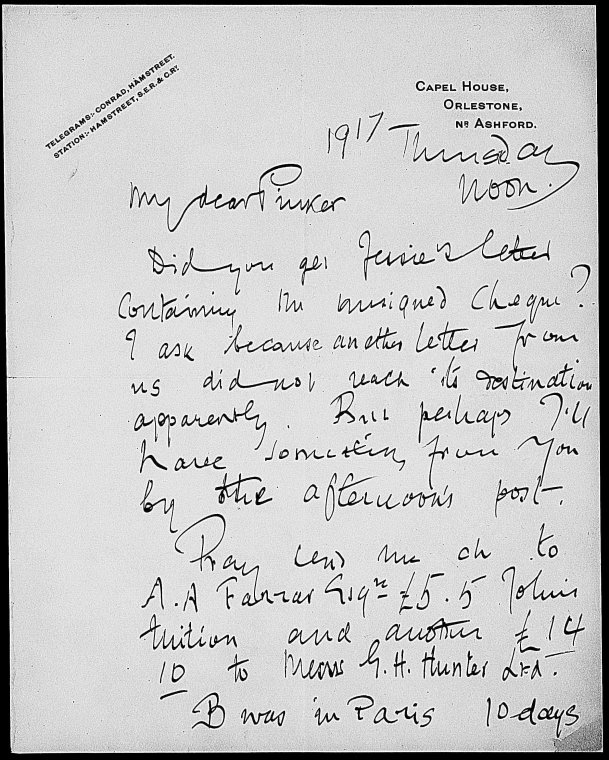 TELEGRAMS:- CONRAD, HAMSTREET.
STATION:- HAMSTREET, S.E.R. & C.RY.
CAPEL HOUSE,
ORLESTONE,
NR ASHFORD.
1917 Thursday
Noon.
My dear Pinker
Did you get Jessie's letter
containing the unsigned cheque?
I ask because another letter from
us did not reach its destination
apparently. But perhaps I'll
have something from you
by the afternoon's post.
Pray send me ch to
A.A Farrar Esqre £5.5 John's
tuition and another £14
10 to Messrs G.H. Hunter Ltd.
B was in Paris 10 days